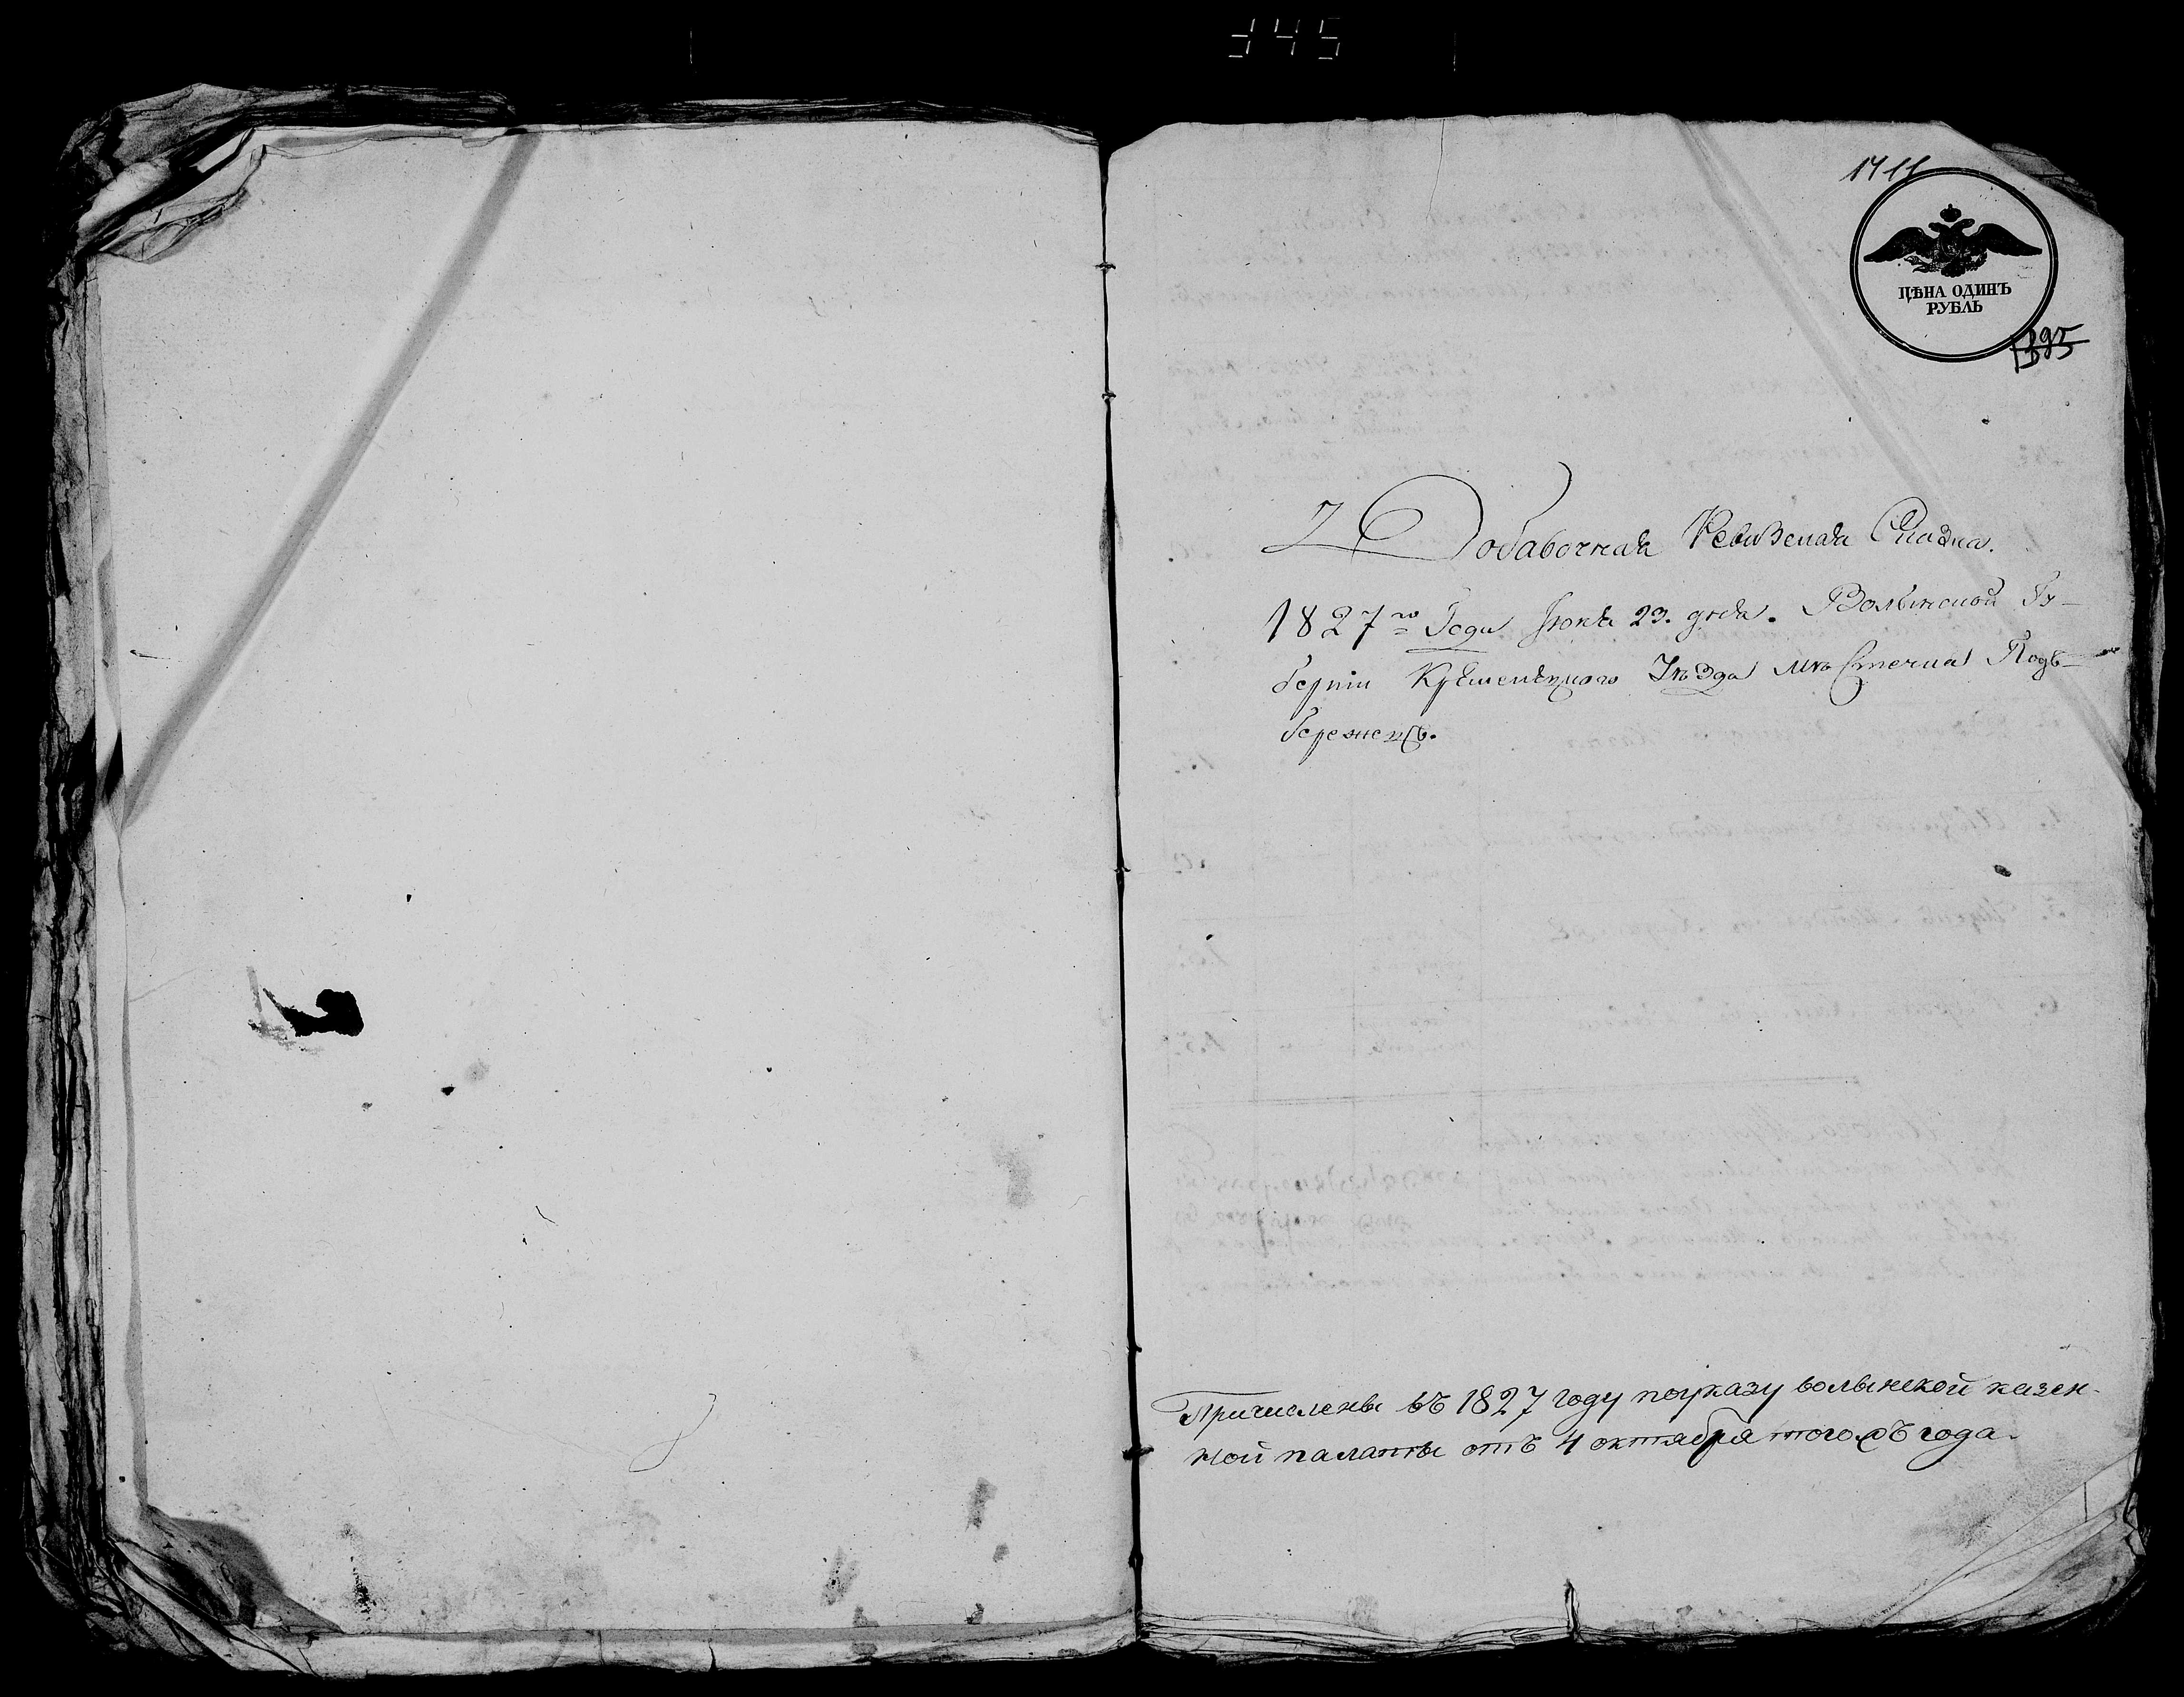 345
1411
ЦѢНА ОДИНЪ
РУБЛЬ
1395
Добавочная Ревизская Сказка.
1827го Года Июня 23. дня. Волынской Гу-
бернiи Кремѣнецкого Уѣзда мѣстечка Подъ-
бережецъ.
Причислены въ 1827 году по указу волынской казен-
ной палаты отъ 4 октября того жъ года.